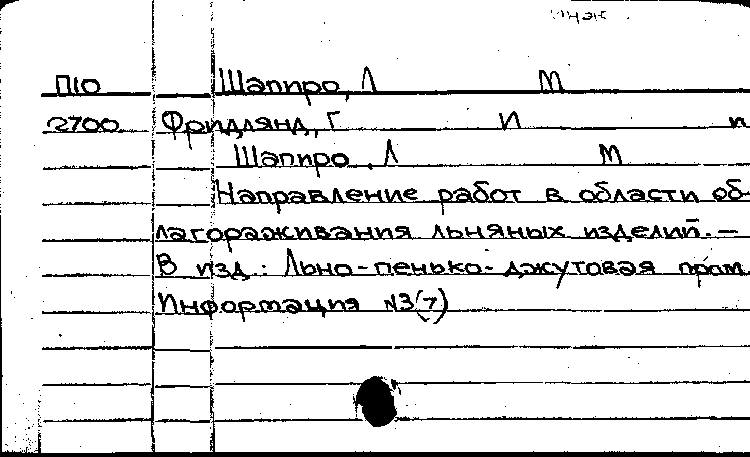 П10 Шапиро, Л М
2700 Фридлянд, Г И и
Шапиро, Л М
Направление работ в области об-
лагораживания льняных изделий. –
В изд.: Льно-пенько-джутовая пром.
Информация №3(7)